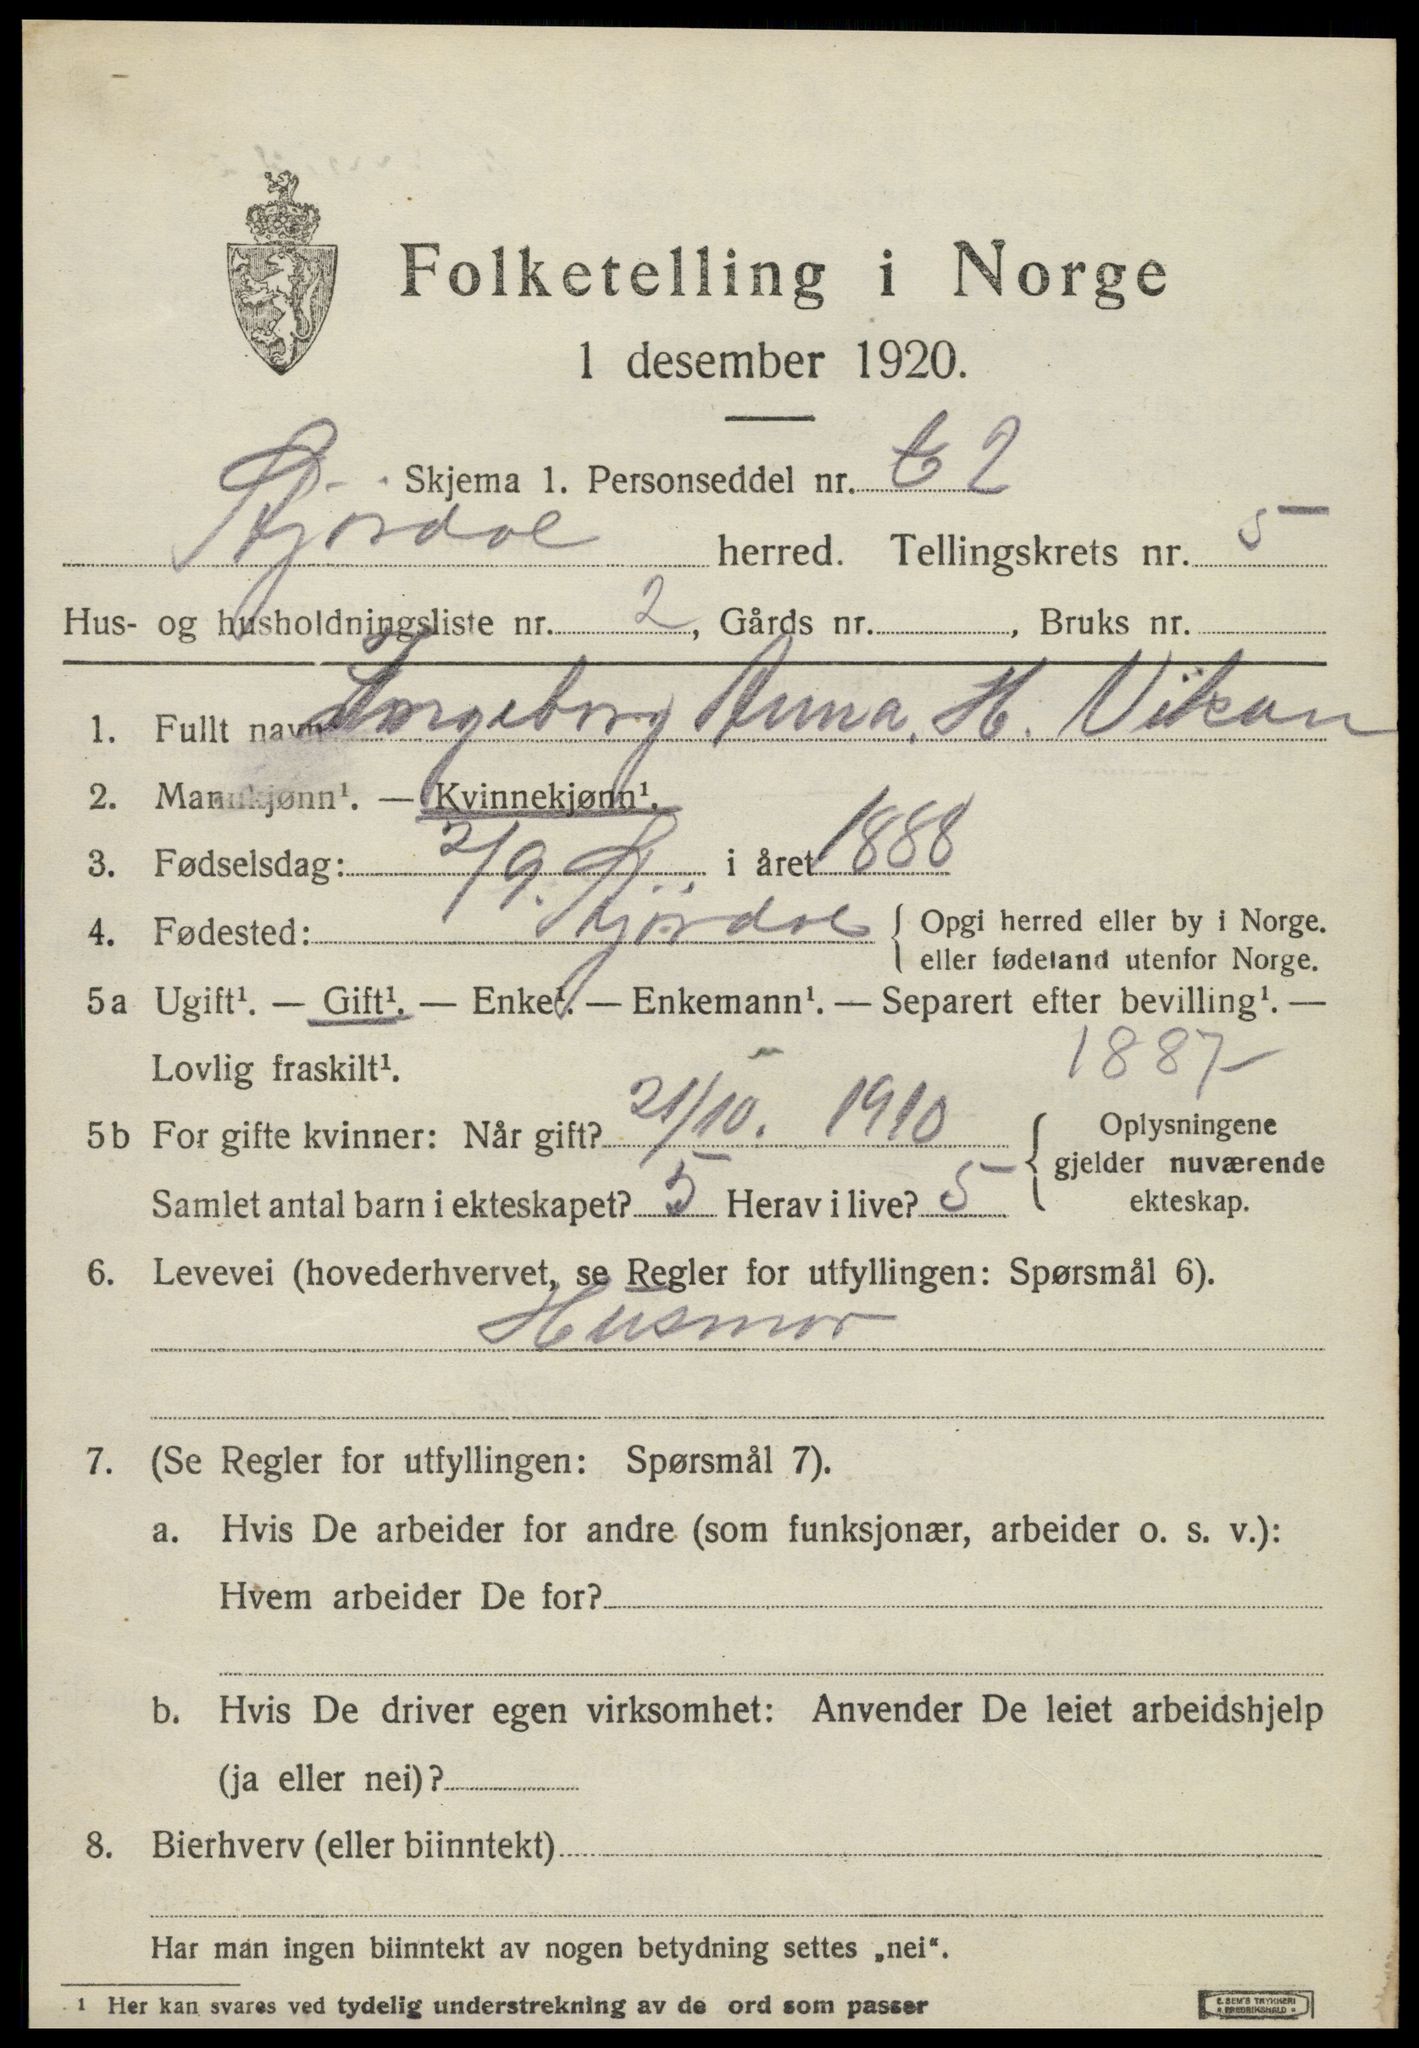 Folketelling i Norge
1 desember 1920.
Skjema 1. Personseddel nr. 2
Stjørdal herred. Tellingskrets nr. 5
Hus- og husholdningsliste nr. 2, Gårds nr. , Bruks nr.
1. Fullt navn Ingeborg Anna. H. Vikan
2. Mannkjønn¹. — Kvinnekjønn¹.
3. Fødselsdag: 2/9. i året 1888
4. Fødested: Stjørdal { Opgi herred eller by i Norge.
eller fødeland utenfor Norge.
5a Ugift¹. — Gift¹. — Enke¹. — Enkemann¹. — Separert efter bevilling¹. —
Lovlig fraskilt¹. 1887
5b For gifte kvinner: Når gift? 21/10. 1910 { Oplysningene
gjelder nuværende
Samlet antal barn i ekteskapet? 5 Herav i live? 5 ekteskap.
6. Levevei (hovederhvervet, se Regler for utfyllingen: Spørsmål 6).
Husmor
7. (Se Regler for utfyllingen: Spørsmål 7).
a. Hvis De arbeider for andre (som funksjonær, arbeider o. s. v.):
Hvem arbeider De for?
b. Hvis De driver egen virksomhet: Anvender De leiet arbeidshjelp
(ja eller nei)?
8. Bierhverv (eller biinntekt)
Har man ingen biinntekt av nogen betydning settes „nei“.
¹ Her kan svares ved tydelig understrekning av de ord som passer
E. SEM'S TRYKKERI
FREDRIKSHALD